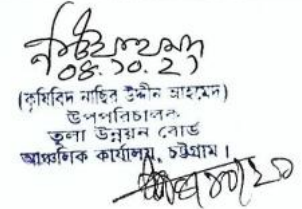 ০৪.১০.২১
(কৃষিবিদ নাছির উদ্দীন আহমেদ)
উপপরিচালক
তুলা উন্নয়ন বোর্ড
আঞ্চলিক কার্যালয়, চট্টগ্রাম।